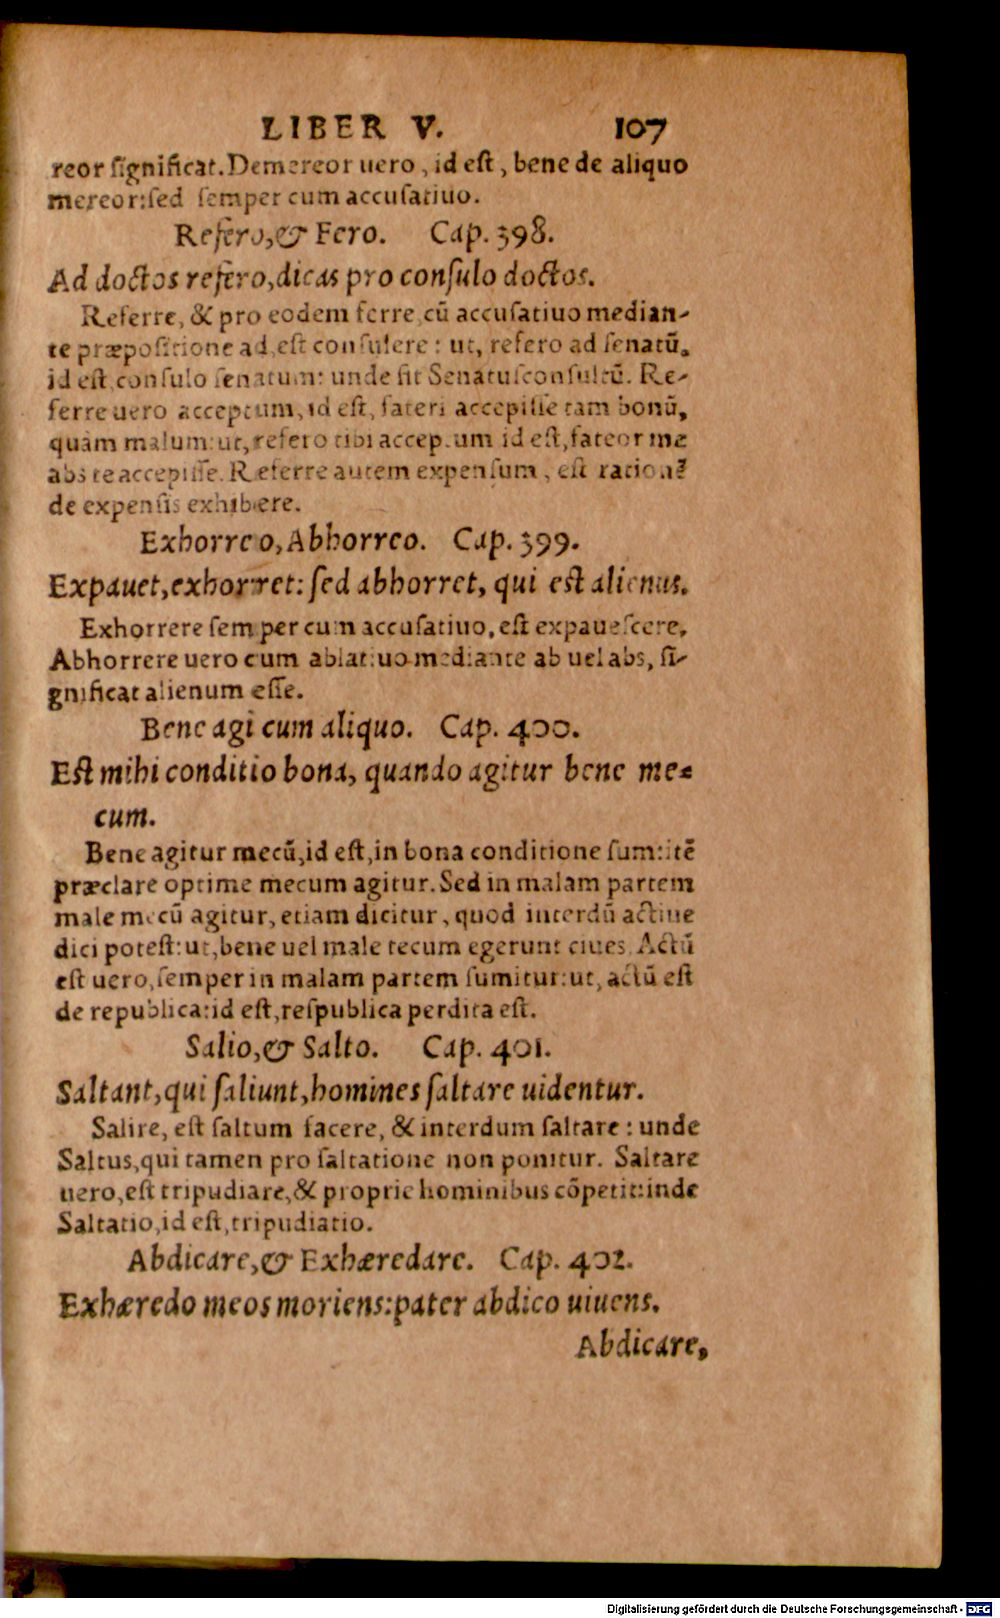 LIBER V. 107
reor ſignificat. Demereor uero, id eſt, bene de aliquo
mereor: ſed ſemper cum accuſatiuo.
Refero, & Fero. Cap. 398.
Ad doctos refero, dicas pro conſulo doctos.
Referre, & pro eodem ferre cū accuſatiuo median-
te præpoſitione ad, eſt conſulere: ut, refero ad ſenatū,
id eſt, conſulo ſenatum: unde fit Senatuſconſultū. Re-
ferre uero acceptum, id eſt, fateri accepiſſe tam bonū,
quàm malum: ut, refero tibi acceptum id eſt, fateor me
abs te accepiſſe. Referre autem expenſum, eſt rationē
de expenſis exhibere.
Exhorreo, Abhorreo. Cap. 399.
Expauet, exhorret: ſed abhorret, qui eſt alienus.
Exhorrere ſemper cum accuſatiuo, eſt expaueſcere,
Abhorrere uero cum ablatiuo mediante ab uel abs, ſi-
gnificat alienum eſſe.
Bene agi cum aliquo. Cap. 400.
Eſt mihi conditio bona, quando agitur bene me-
cum.
Bene agitur mecū, id eſt, in bona conditione ſum: itē
præclare optime mecum agitur. Sed in malam partem
male mecū agitur, etiam dicitur, quod interdū actiue
dici poteſt: ut, bene uel male tecum egerunt ciues. Actū
eſt uero, ſemper in malam partem ſumitur: ut, actū eſt
de republica: id eſt, reſpublica perdita eſt.
Salio, & Salto. Cap. 401.
Saltant, qui ſaliunt, homines ſaltare uidentur.
Salire, eſt ſaltum facere, & interdum ſaltare: unde
Saltus, qui tamen pro ſaltatione non ponitur. Saltare
uero, eſt tripudiare, & proprie hominibus cōpetit: inde
Saltatio, id eſt, tripudiatio.
Abdicare, & Exhæredare. Cap. 402.
Exhæredo meos moriens: pater abdico uiuens.
Abdicare,
Digitalisierung gefördert durch die Deutsche Forschungsgemeinschaft - DFG